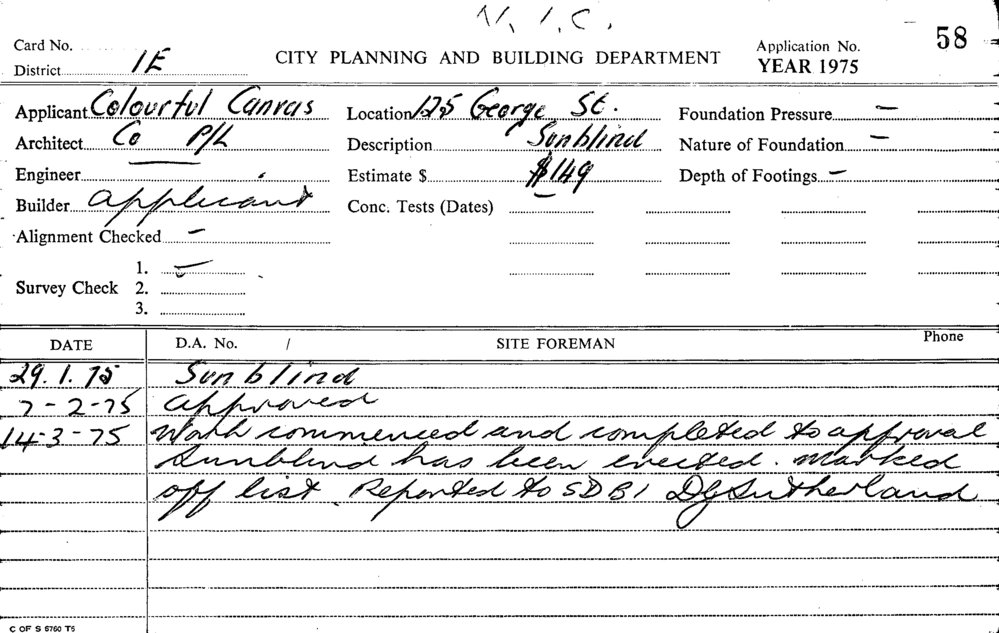 N.I.C.
58
Card No.
District 1E
CITY PLANNING AND BUILDING DEPARTMENT
Application No.
YEAR 1975
Applicant Colourful Canvas
Location 125 George St.
Foundation Pressure —
Architect Co P/L
Description Sunblind
Nature of Foundation —
Engineer
Estimate $ $149
Depth of Footings —
Builder applicant
Conc. Tests (Dates)
Alignment Checked —
Survey Check 1.
2.
3.
DATE D.A. No. / SITE FOREMAN Phone
29.1.75 Sunblind
7-2-75 approved
14-3-75 Work commenced and completed to approval
Sunblind has been erected. Marked
off list. Reported to SDBI DG Sutherland
C OF S 5760 T5